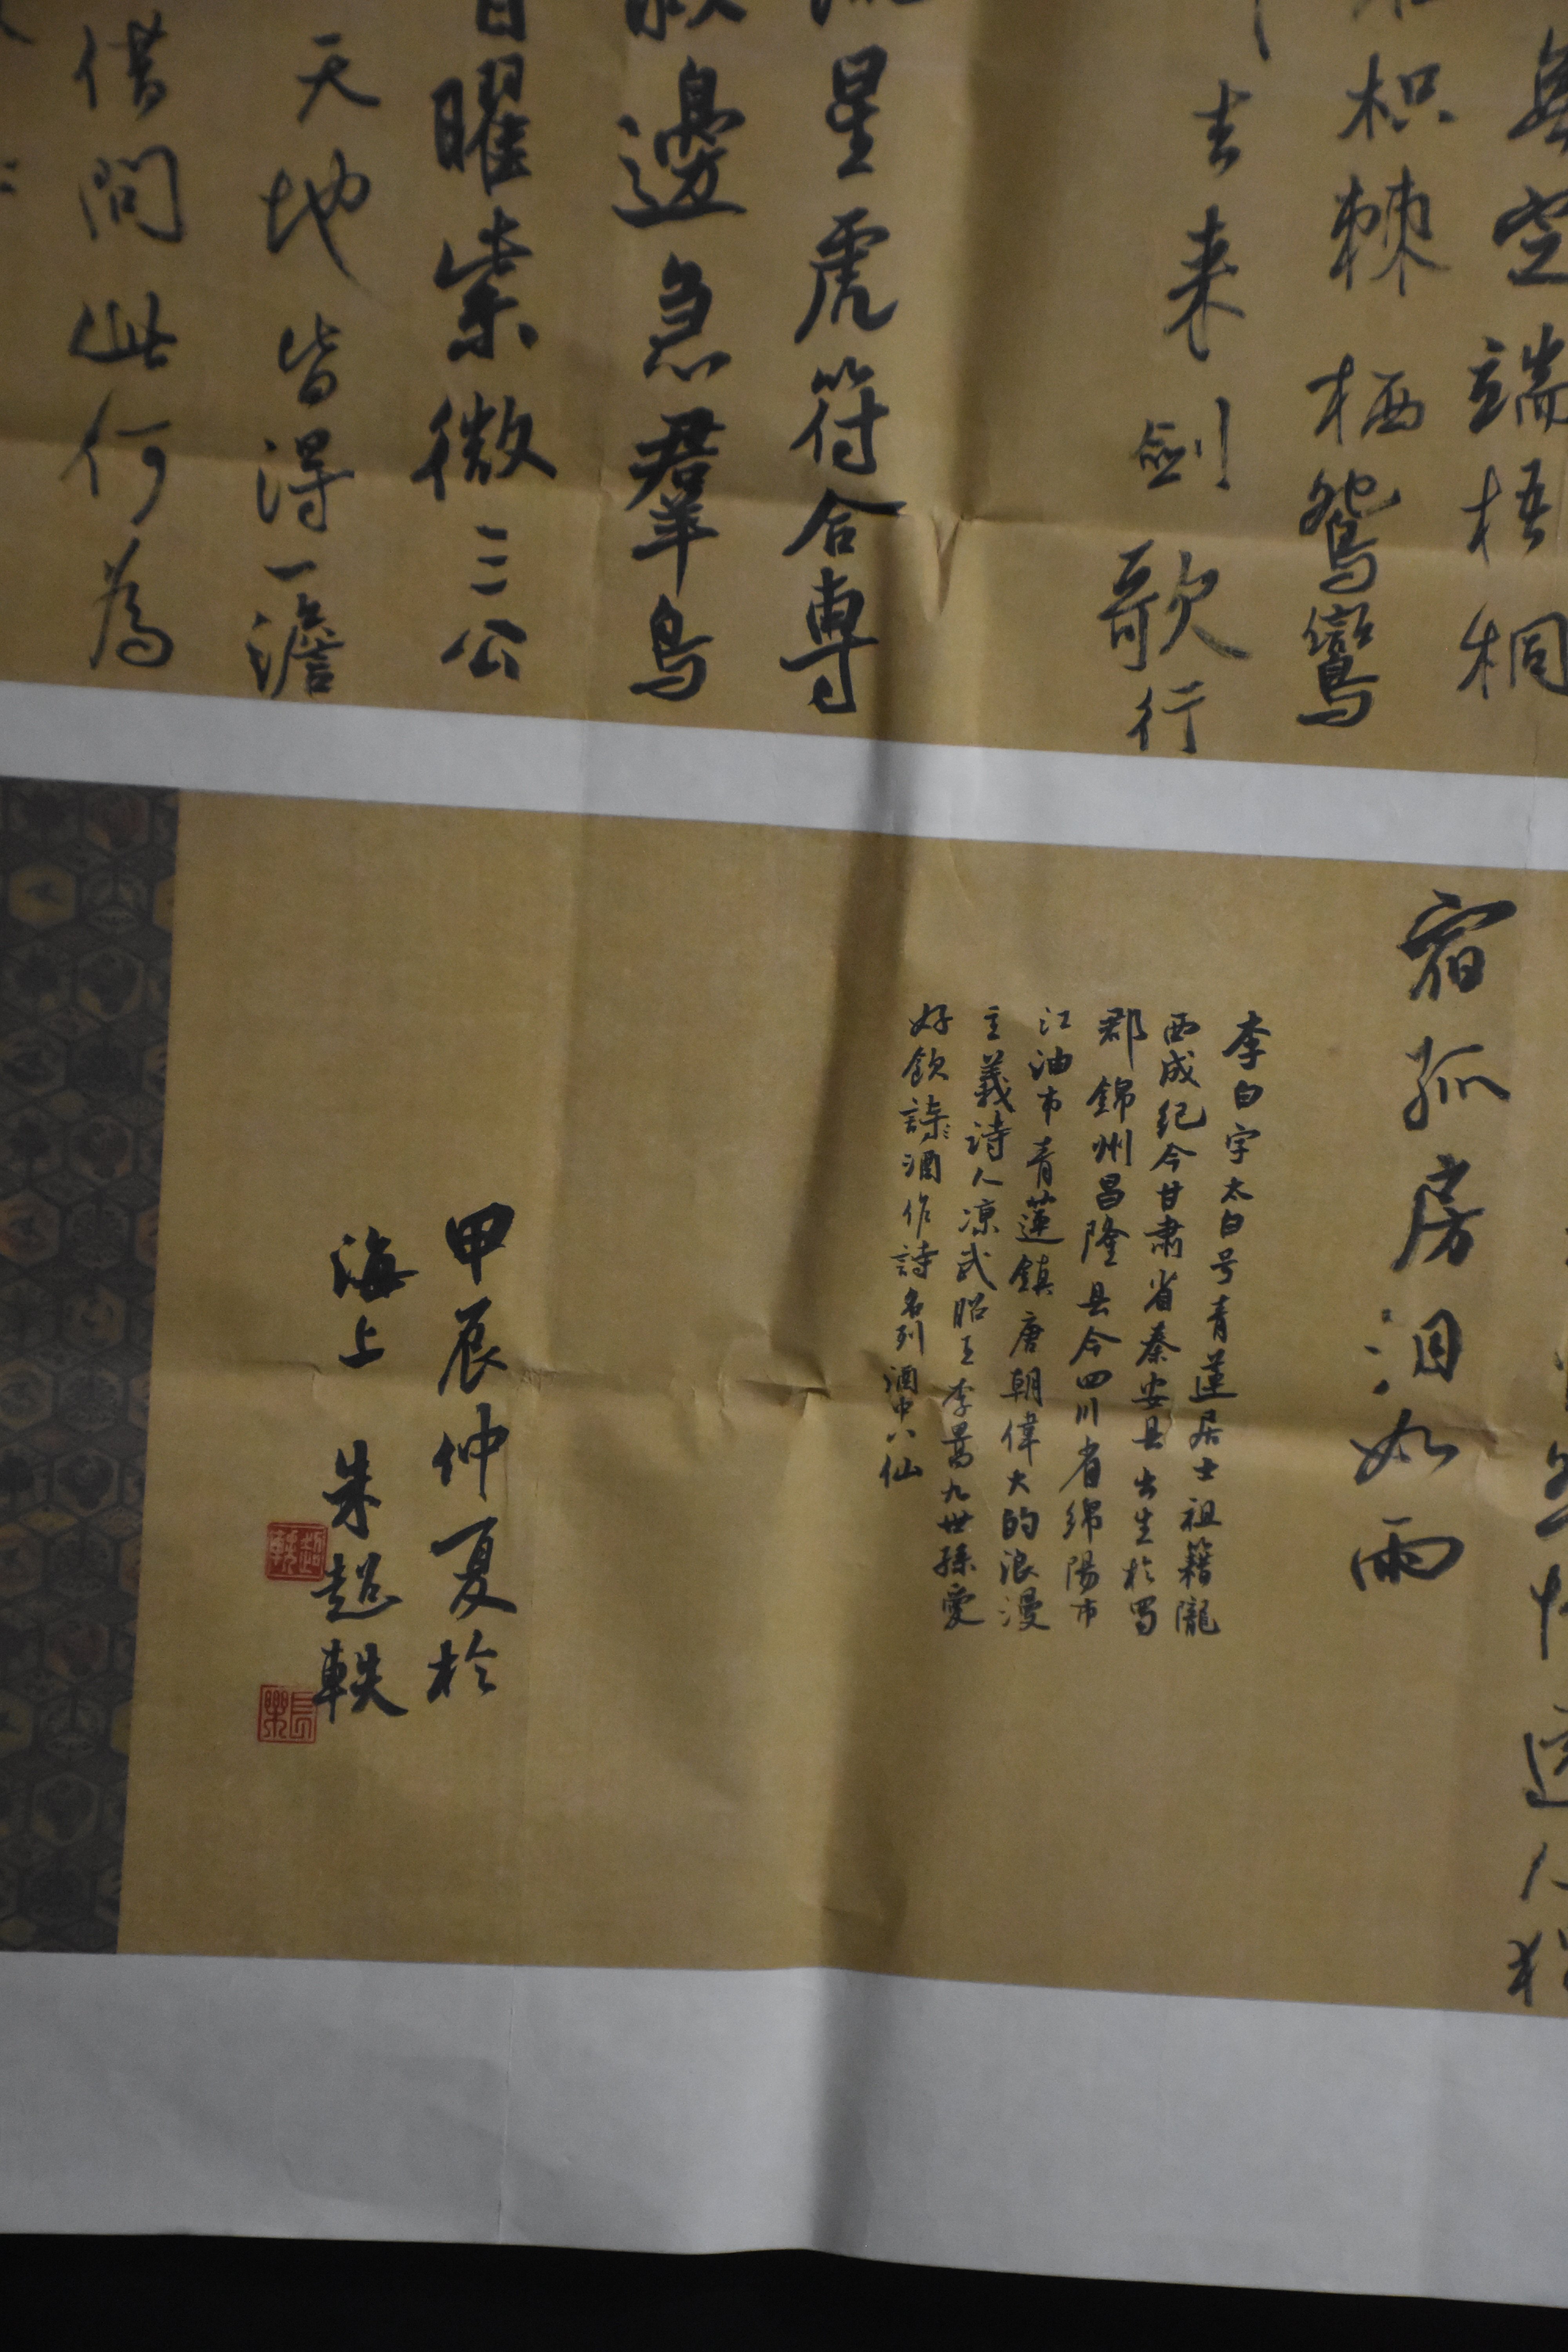 無空端梧桐
枳棘栖鴛鸞
去来剑歌行
星虎符合專
邊急羣鳥
曜紫微三公
天地皆得一澹
借問此何為
宿孤房泪如雨
李白字太白号青蓮居士祖籍隴
西成纪今甘肃省秦安县出生於蜀
郡錦州昌隆县今四川省绵陽市
江油市青蓮鎮唐朝偉大的浪漫
主義诗人凉武昭王李暠九世孫愛
好飲酒作詩名列酒中八仙
甲辰仲夏於
海上 朱超軼
超軼
長樂